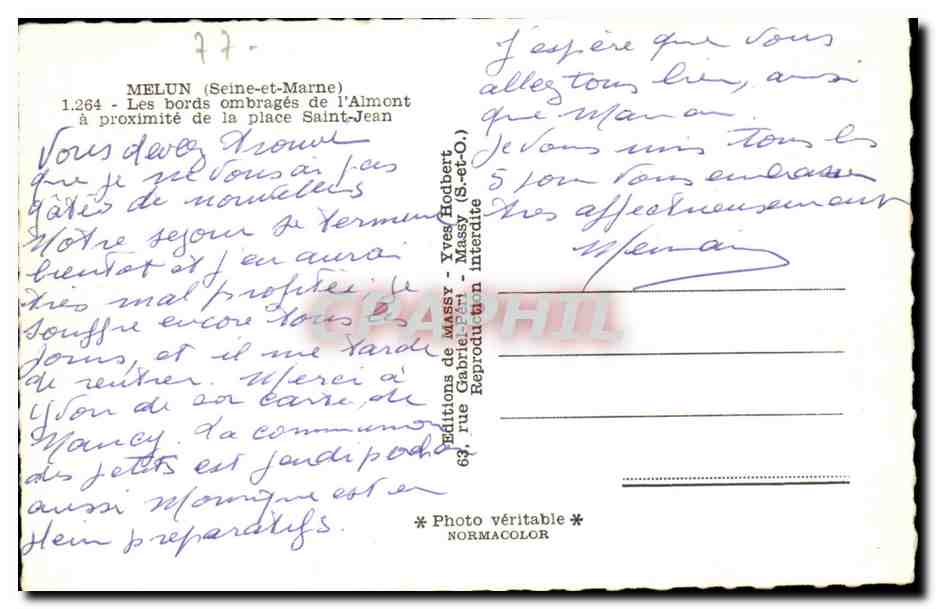 77-
MELUN (Seine-et-Marne)
1.264 - Les bords ombragés de l'Almont
à proximité de la place Saint-Jean
Vous devez trouver
que je ne vous ai pas
gâtés de nouvelles
Notre séjour se termine
bientôt et j'en aurai
très mal profité. Je
souffre encore tous les
jours, et il me tarde
de rentrer. Merci à
Yvon de sa carte, de
Nancy. La communion
des petits est jeudi prochain
aussi Monique est en
plein préparatifs.
J'espère que vous
allez tous bien, ainsi
que Manon
Je vous tous les
5 vous embrasse
très affectueusement
Editions de MASSY - Yves Hodbert
63, rue Gabriel-Péri - Massy (S.-et-O.)
Reproduction interdite
CPAPHIL
* Photo véritable *
NORMACOLOR